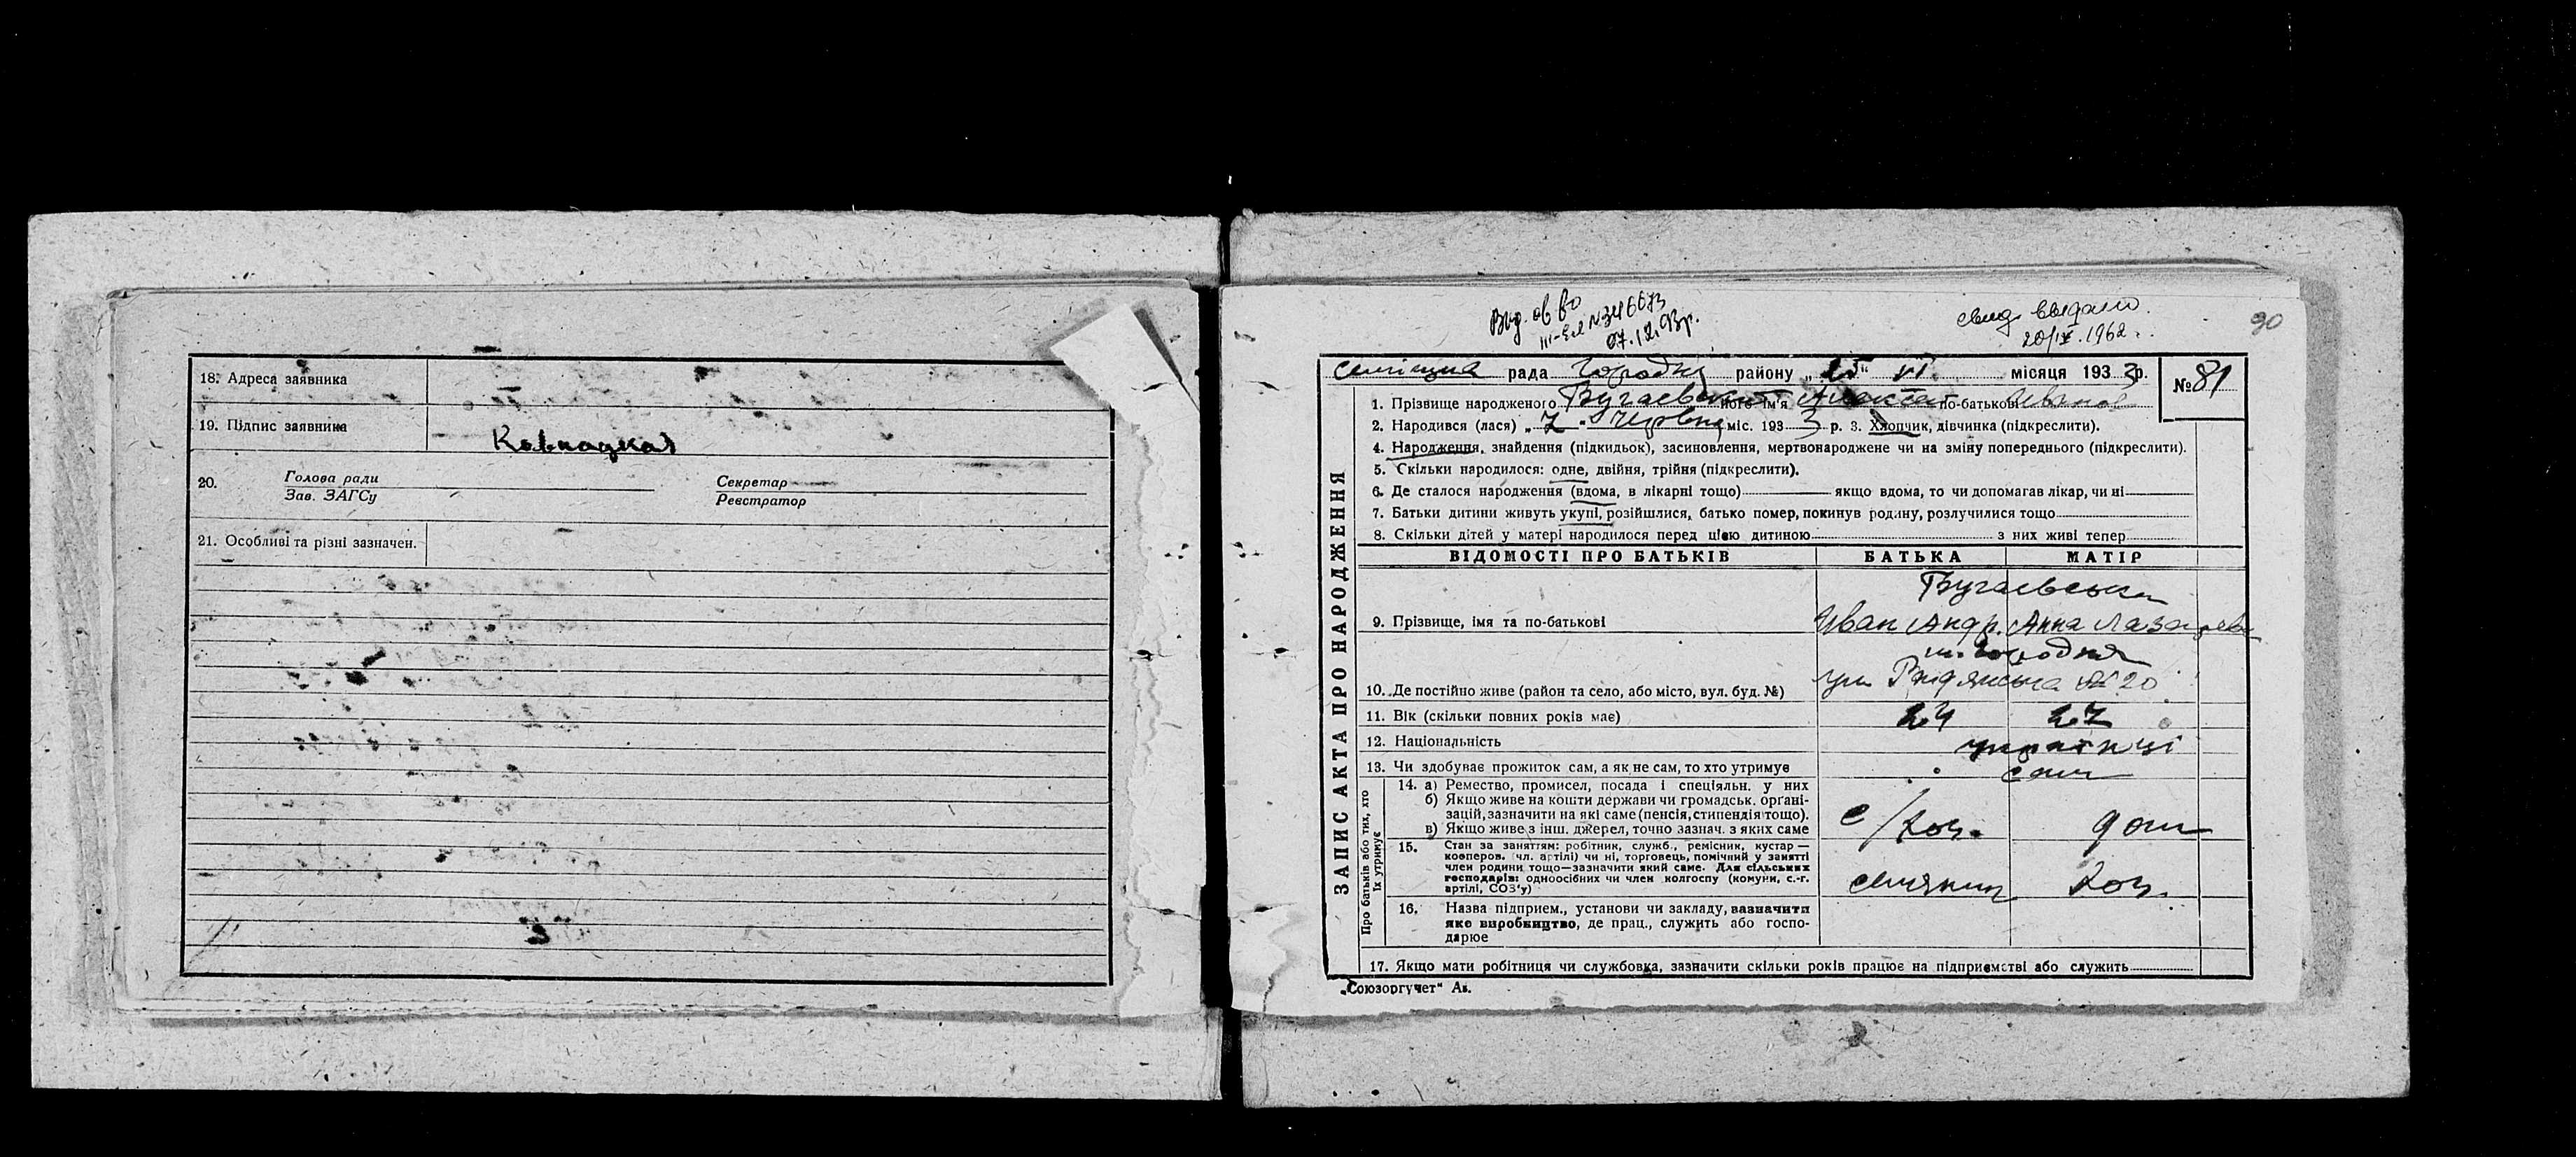 18. Адреса заявника
19. Підпис заявника
20. Голова ради Секретар
Зав. ЗАГСу Реєстратор
21. Особливі та різні зазначен.
07.12.93р.
свид. выдано
20/IV.1962
90
рада району „ “ VI місяця 1933р. № 81
1. Прізвище народженого його ім'я по-батькові
2. Народився (лася) „7“ Червня міс. 1933 р. 3. Хлопчик, дівчинка (підкреслити).
4. Народження, знайдення (підкидьок), засиновлення, мертвонароджене чи на зміну попереднього (підкреслити).
5. Скільки народилося: одне, двійня, трійня (підкреслити).
6. Де сталося народження (вдома, в лікарні тощо) якщо вдома, то чи допомагав лікар, чи ні
7. Батьки дитини живуть укупі, розійшлися, батько помер, покинув родину, розлучилися тощо
8. Скільки дітей у матері народилося перед цією дитиною з них живі тепер
ЗАПИС АКТА ПРО НАРОДЖЕННЯ
ВІДОМОСТІ ПРО БАТЬКІВ БАТЬКА МАТІР
9. Прізвище, імя та по-батькові Иван Андр. Анна
м. Городня
10. Де постійно живе (район та село, або місто, вул. буд. №) Радянська № 20
11. Вік (скільки повних років має) 24 27
12. Національність українці
13. Чи здобуває прожиток сам, а як не сам, то хто утримує сам
Про батьків або тих, хто їх утримує
14. а) Ремество, промисел, посада і спеціяльн. у них
б) Якщо живе на кошти держави чи громадськ. органі-
зацій, зазначити на які саме (пенсія, стипендія тощо).
в) Якщо живе з інш. джерел, точно зазнач. з яких саме
15. Стан за заняттям: робітник, служб., ремісник, кустар —
кооперов. (чл. артілі) чи ні, торговець, помічний у занятті
член родини тощо—зазначити який саме. Для сільських
господарів: одноосібних чи член колгоспу (комуни, с.-г.
артілі, СОЗ'у)
16. Назва підприєм., установи чи закладу, зазначити
яке виробництво, де прац., служить або госпо-
дарює
17. Якщо мати робітниця чи службовка, зазначити скільки років працює на підприємстві або служить
„Союзоргучет“ Ал.